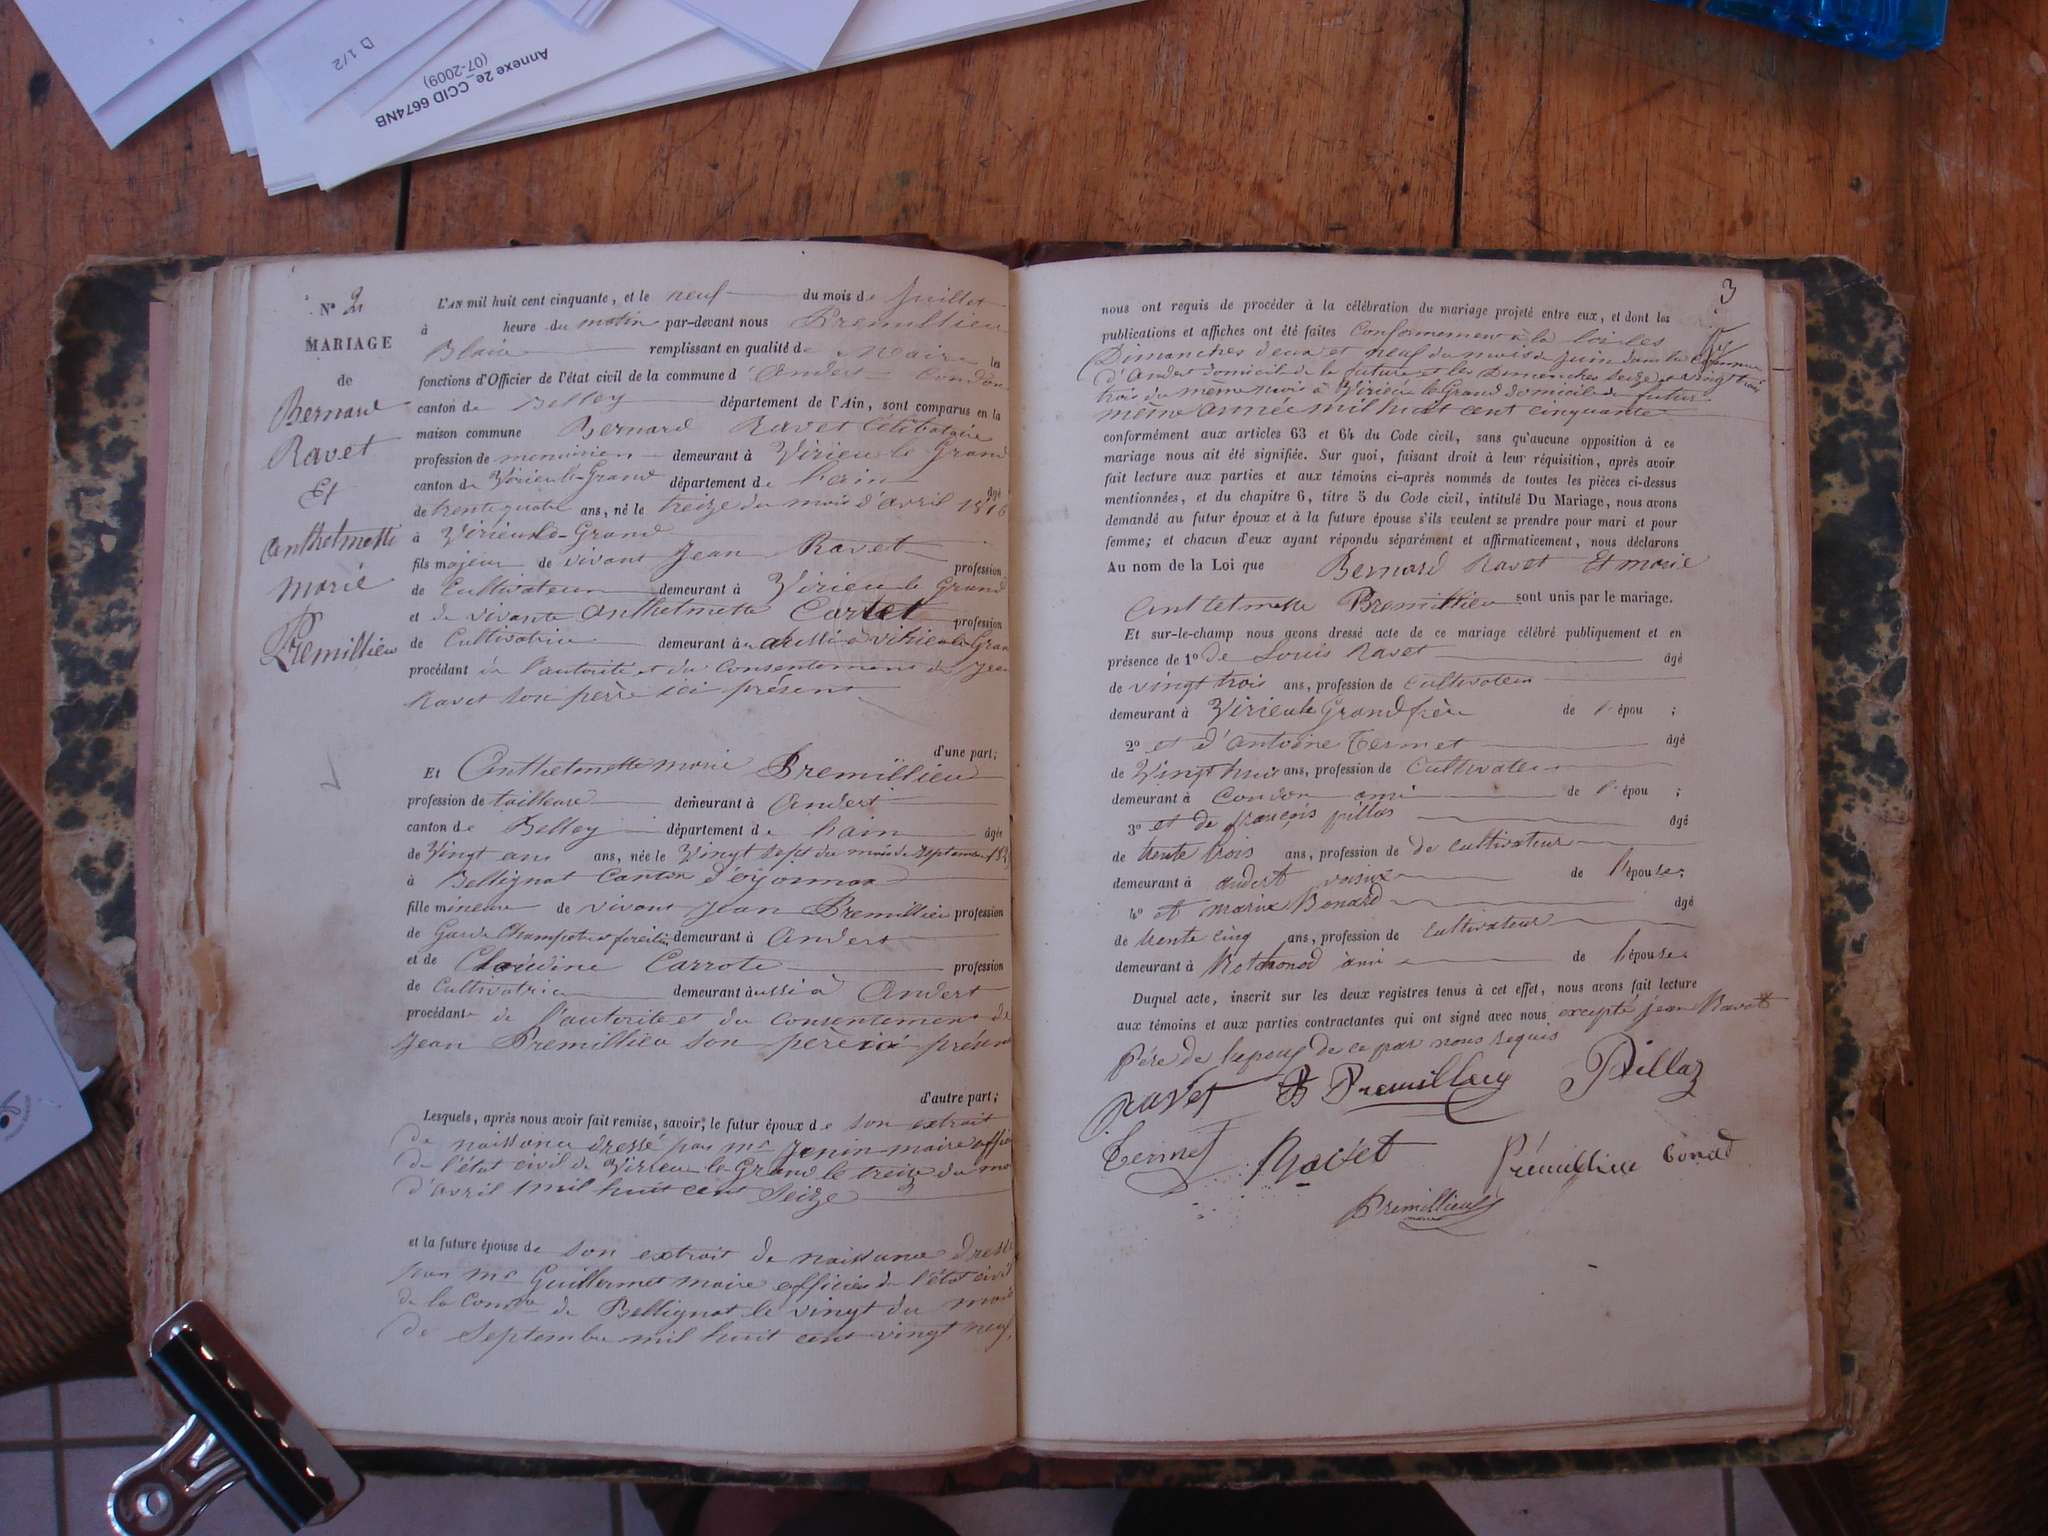 D 1/2
Annexe 2e_CCID 6674NB
(07-2009)
N° 2
MARIAGE
de
Bernard
Ravet
Et
anthelmette
marie
Premillieu
L'AN mil huit cent cinquante, et le neuf du mois de Juillet
à heure du matin par-devant nous Premillieu
Blaise remplissant en qualité de Maire les
fonctions d'Officier de l'état civil de la commune d'Andert-Condon
canton de Belley département de l'Ain, sont comparus en la
maison commune Bernard Ravet Célibataire
profession de menuisier demeurant à Virieu le Grand
canton de Virieu le-Grand département de l'ain âgé
de trente quatre ans, né le treize du mois d'avril 1816
à Virieu le-Grand
fils majeur de vivant Jean Ravet profession
de Cultivateur demeurant à Virieu le Grand
et de vivante Anthelmette Cartet profession
de Cultivatrice demeurant à aussi à Virieu le Gran
procédant de l'autorité et du Consentement de Jean
Ravet son père ici présent
d'une part;
Et Anthelmette marie Premillieu
profession de tailleuse demeurant à Andert
canton de Belley département de l'ain âgée
de Vingt ans ans, née le Vingt sept du mois de septembre
à Bellignat Canton d'oyonnax
fille mineure de vivant Jean Premillieu profession
de Garde Champetre et forestier demeurant à Andert
et de Claudine Carrote profession
de Cultivatrice demeurant aussi à Andert
procédant de l'autorité et du Consentement de
Jean Premillieu son pere ici présent
d'autre part;
Lesquels, après nous avoir fait remise, savoir; le futur époux de son extrait
de naissance dressé par mr Jenin maire offic
de l'état civil de Virieu le Grand le treize du mo
d'avril mil huit cent seize
et la future épouse de son extrait de naissance dressé
par mr Guillermet maire officier de l'état civil
de la Comne de Bellignat le vingt du mois
de septembre mil huit cent vingt neuf,
3
nous ont requis de procéder à la célébration du mariage projeté entre eux, et dont les
publications et affiches ont été faites Conformement à la loi les
Dimanches deux et neuf du mois de juin dans la Commune
d'Andert domicile de la future et les Dimanches seize et vingt trois
du même mois à Virieu le Grand domicile du futur
même année mil huit cent cinquante
conformément aux articles 63 et 64 du Code civil, sans qu'aucune opposition à ce
mariage nous ait été signifiée. Sur quoi, faisant droit à leur réquisition, après avoir
fait lecture aux parties et aux témoins ci-après nommés de toutes les pièces ci-dessus
mentionnées, et du chapitre 6, titre 5 du Code civil, intitulé Du Mariage, nous avons
demandé au futur époux et à la future épouse s'ils veulent se prendre pour mari et pour
femme; et chacun d'eux ayant répondu séparément et affirmativement, nous déclarons
Au nom de la Loi que Bernard Ravet Et marie
Anthelmette Premillieu sont unis par le mariage.
Et sur-le-champ nous avons dressé acte de ce mariage célébré publiquement et en
présence de 1° de Louis Ravet âgé
de vingt trois ans, profession de Cultivateur
demeurant à Virieu le Grand frère de l'épou ;
2° et d'antoine Termet âgé
de Vingt huit ans, profession de Cultivateur
demeurant à Condon ami de l'épou ;
3° et de françois pillaz âgé
de trente trois ans, profession de de cultivateur
demeurant à andert voisin de l'épouse;
4° et marin Bonard âgé
de trente cinq ans, profession de cultivateur
demeurant à Rothonod ami de l'épouse
Duquel acte, inscrit sur les deux registres tenus à cet effet, nous avons fait lecture
aux témoins et aux parties contractantes qui ont signé avec nous excepté jean Ravet
père de l'epoux de ce par nous requis
Ravet B Premillieu Pillaz
Termet Ravet Prémillieu bonard
Premillieu